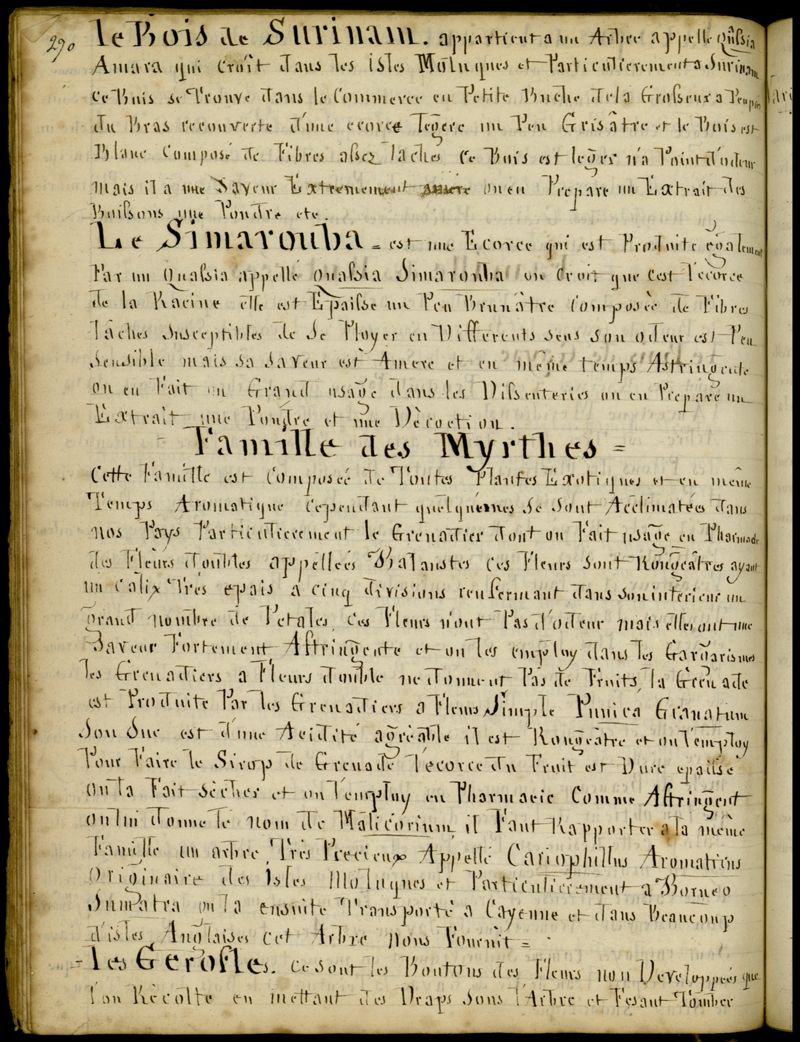 290
le Bois de Surinam. appartient a un Arbre appellé Quassia
Amara qui Croît dans les isles Moluques et Particulierement a Surinam
Ce Bois se Trouve dans le Commerce en Petite Buche de la Grosseur a Peuprés
du Bras recouverte d'une ecorce legere un Peu Grisâtre et le Bois est
Blanc Composé de Fibres assez laches Ce Bois est leger n'a Point d'odeur
mais il a une Saveur Extremement amere on en Prepare un Extrait des
Boissons une Poudre etc.
Le Simarouba = est une Ecorce qui est Produite égalemen
Par un Quassia appellé Quassia Simarouba on Croit que C'est l'ecorce
de la Racine elle est Epaisse un Peu Brunâtre Composée de Fibres
laches Susceptibles de Se Ployer en Differents Sens Son odeur est Peu
Sensible mais Sa Saveur est Amere et en même temps Astringente
on en Fait un Grand usage dans les Dissenteries on en Prepare un
Extrait une Poudre et une Décoction.
Famille des Myrthes =
Cette Famille est Composée de Toutes Plantes Exotiques et en même
Temps Aromatique Cependant quelqu'unes Se Sont Acclimatées dans
nos Pays Particulierement le Grenadier dont on Fait usage en Pharmacie
des Fleurs doubles appellées Balaustes Ces Fleurs Sont Rougeâtres ayant
un Calix Tres epais a cinq divisions renfermant dans Son interieur un
grand nombre de Petales. Ces Fleurs n'ont Pas d'odeur mais elles ont une
Saveur Fortement Astringente et on les employ dans les Gargarismes
les Grenadiers a Fleurs double ne donnent Pas de Fruits, la Grenade
est Produite Par les Grenadiers a Fleurs Simple Punica Granatum
Son Suc est d'une Acidité agréable il est Rougeatre et on l'employ
Pour Faire le Sirop de Grenade l'ecorce du Fruit est Dure epaisse
on la Fait Sècher et on l'employ en Pharmacie Comme Astringent
on lui donne le nom de Malicorium, il Faut Rapporter a la même
Famille un arbre Trés Precieux Appellé Cariophillus Aromaticus
Originaire des Isles Moluques et Particulièrement a Borneo
Sumatra on l'a ensuite Transporté a Cayenne et dans Beaucoup
d'isles Anglaises Cet Arbre nous Fournit =
= les Gerofles. Ce Sont les Boutons des Fleurs non Developpées que
l'on Récolte en mettant des Draps Sous l'Arbre et Fesant Tomber